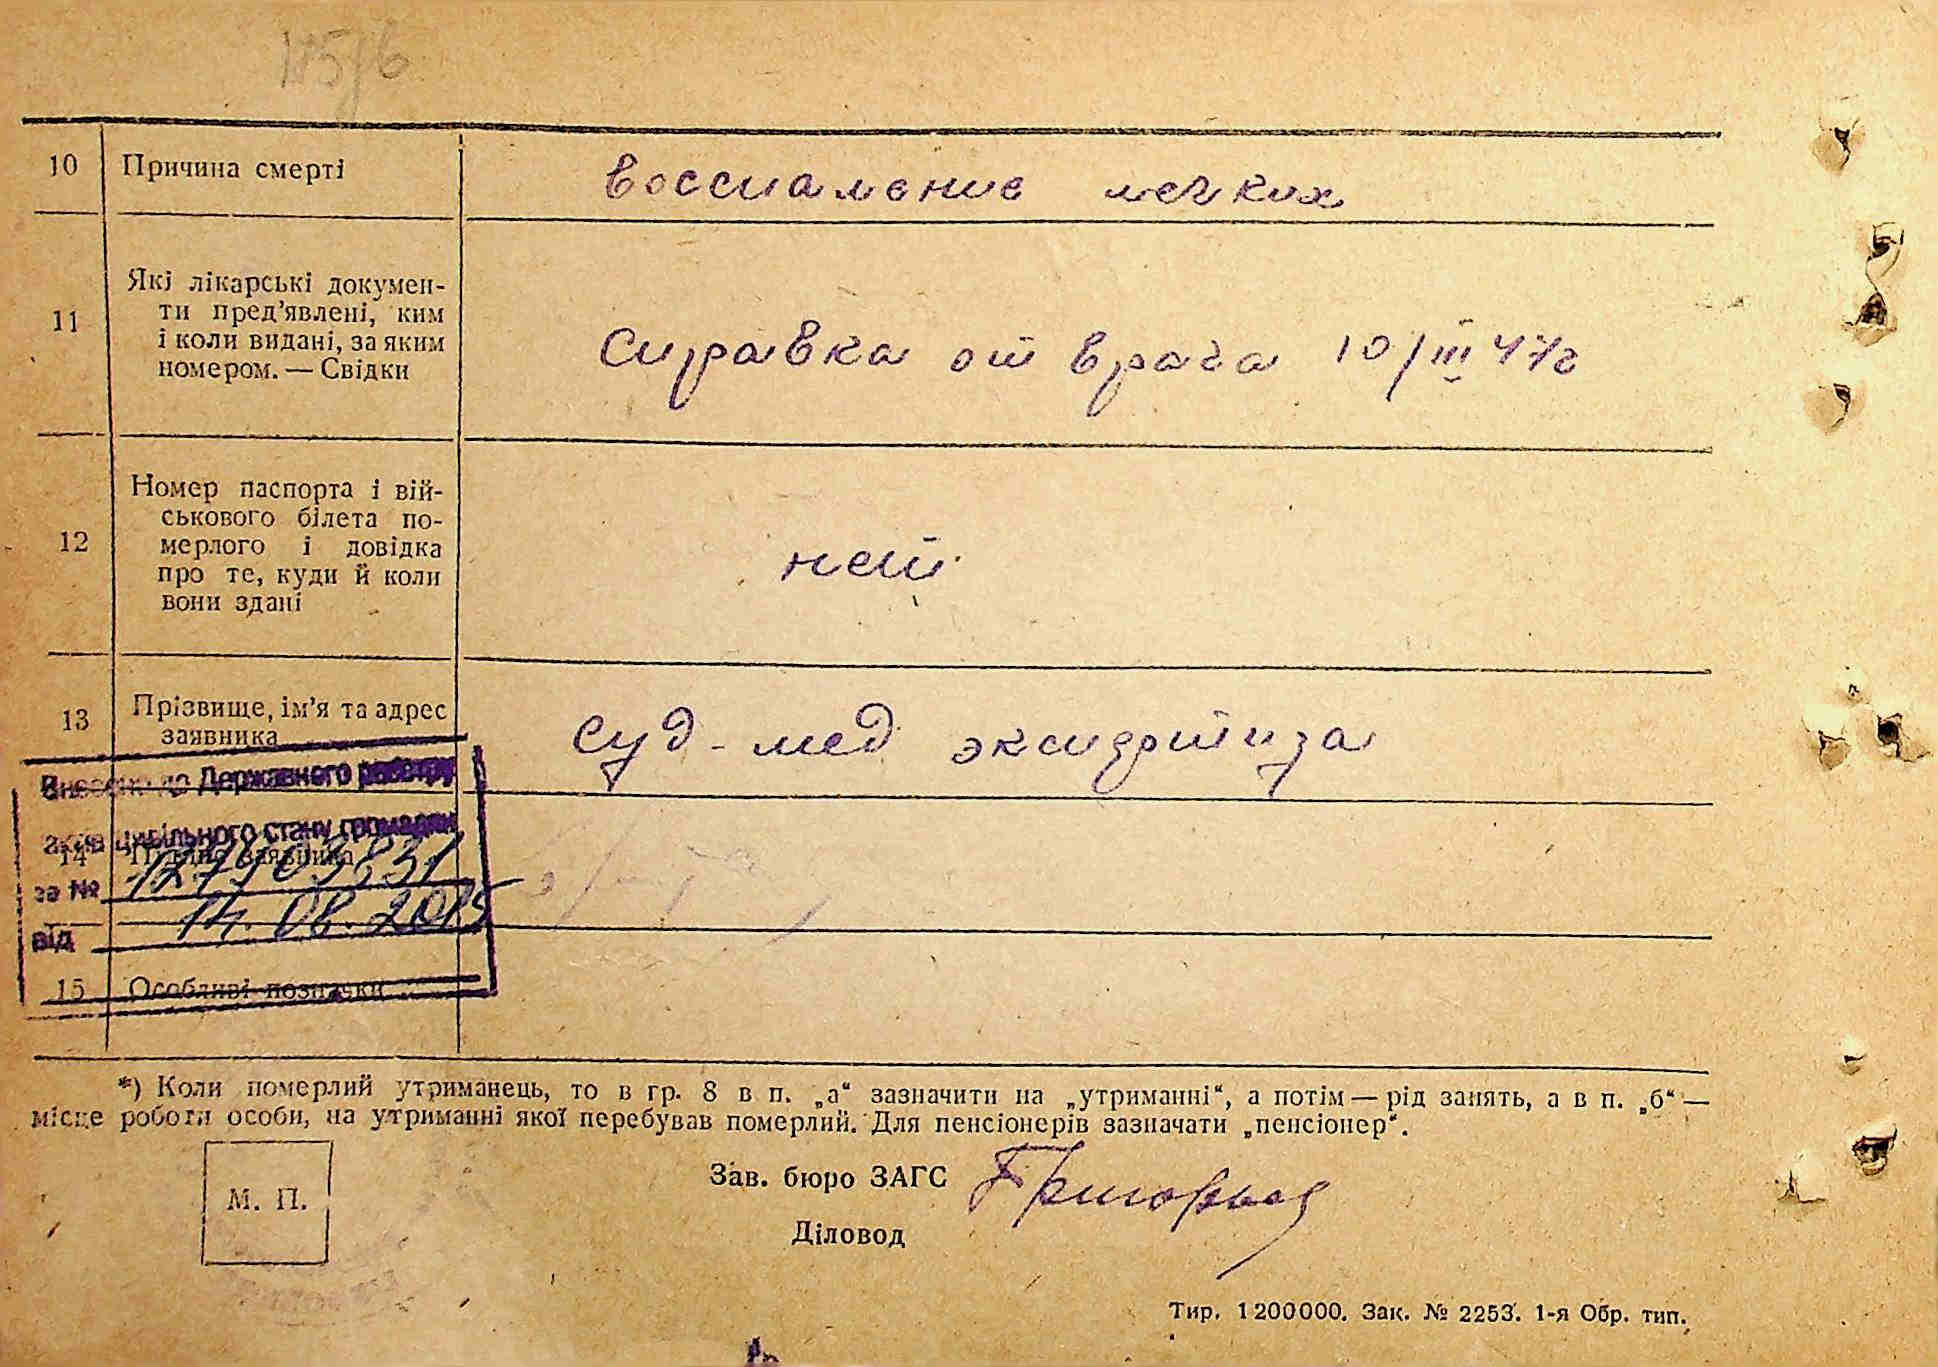 10 Причина смерті воссналение легких
11 Які лікарські докумен-
ти пред’явлені, ким
і коли видані, за яким
номером. — Свідки
Справка от врача 10/III 47г
12 Номер паспорта і вій-
ськового білета по-
мерлого і довідка
про те, куди й коли
вони здані
нет
13 Прізвище, ім’я та адрес
заявника
Суд-мед экспертиза
Внесено до Державного реєстру
актів цивільного стану громадян
14 Підпис заявника
за №
від 14.08.2015
15 Особливі позначки
*) Коли померлий утриманець, то в гр. 8 в п. „а“ зазначити на „утриманні“, а потім — рід занять, а в п. „б“ —
місце роботи особи, на утриманні якої перебував померлий. Для пенсіонерів зазначати „пенсіонер“.
М. П.
Зав. бюро ЗАГС
Діловод
Тир. 1200000. Зак. № 2253. 1-я Обр. тип.